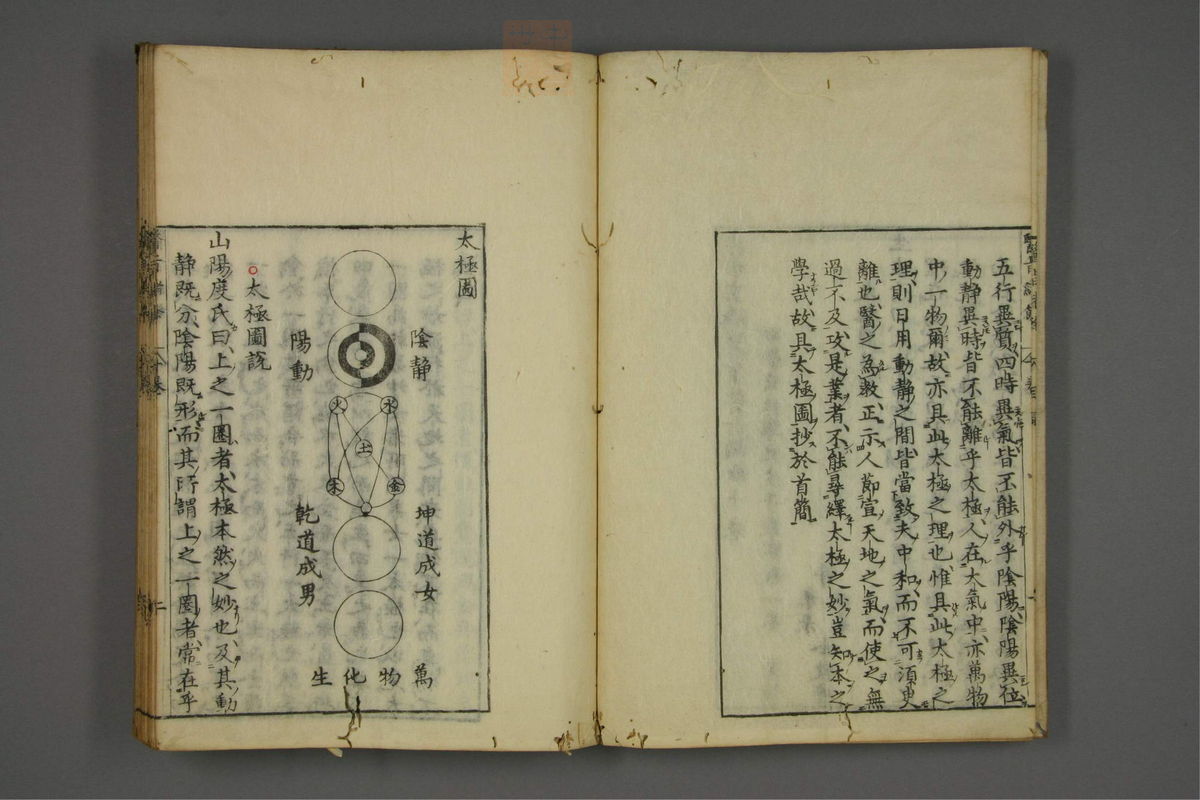 五行異質四時異氣皆不能外乎陰陽陰陽異位
動靜異時皆不能離乎太極人在大氣中亦萬物
中一物爾故亦具此太極之理也惟具此太極之
理則日用動靜之間皆當致夫中和而不可須臾
離也醫之為教正示人節宣天地之氣而使之無
過不及攻是業者不能尋繹太極之妙豈知本之
學哉故具太極圖抄於首簡
太極圖
陰静
陽動
火
水
土
木
金
坤道成女
乾道成男
萬物化生
太極圖説
山陽度氏曰上之一圏者太極本然之妙也及其動
静既分陰陽既形而其所謂上之一圏者常在乎
二